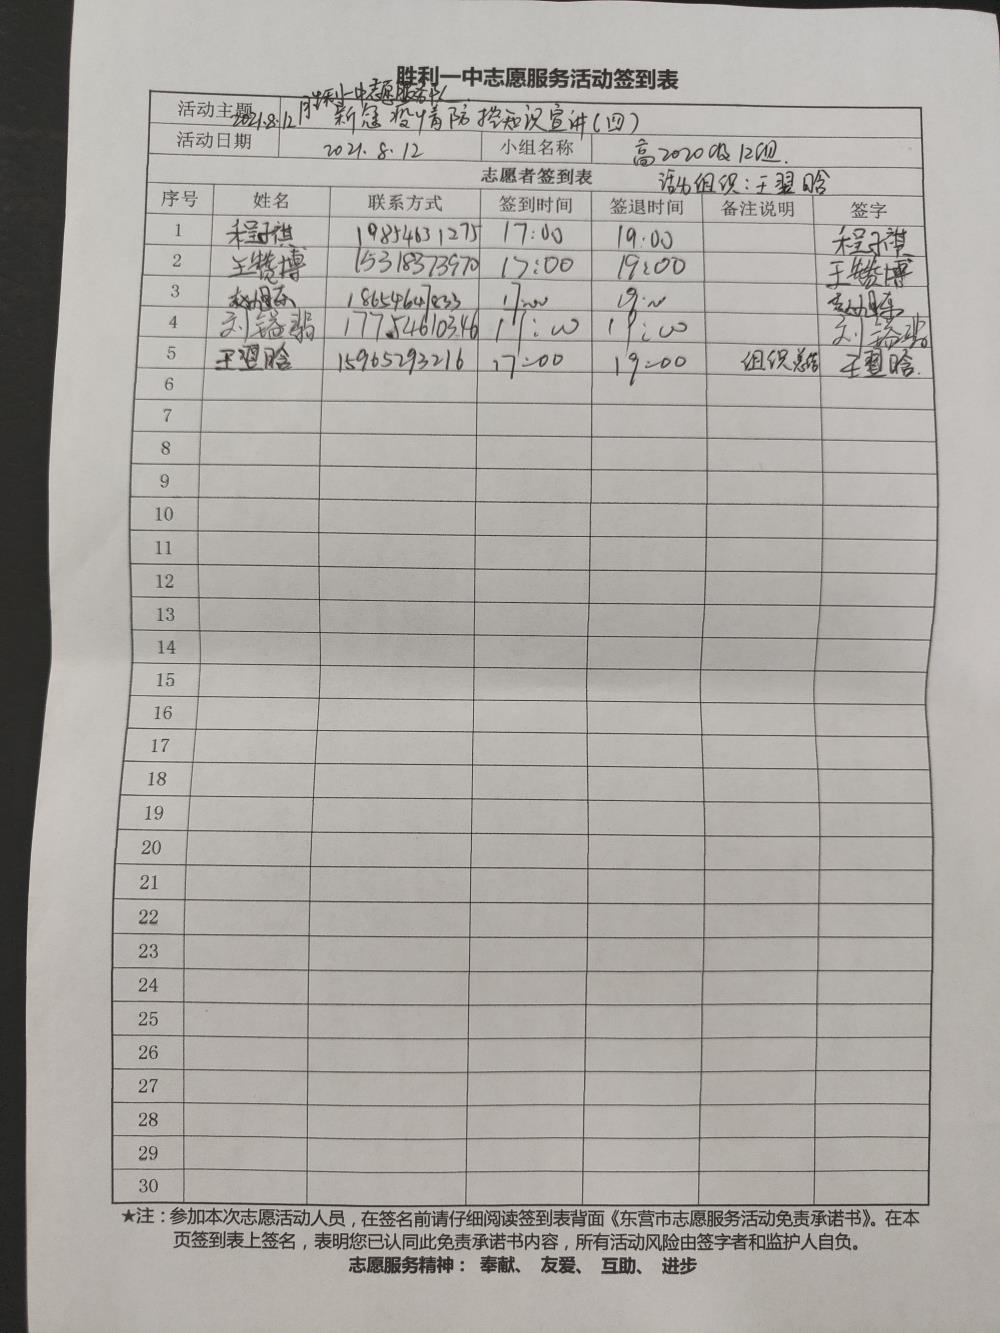 胜利一中志愿服务活动签到表
胜利一中志愿服务队
活动主题 2021.8.12 新冠疫情防控知识宣讲(四)
活动日期 2021.8.12 小组名称 高2020级12组.
志愿者签到表 活动组织:王翌晗
序号 姓名 联系方式 签到时间 签退时间 备注说明 签字
1 程子祺 19854631275 17:00 19:00 程子祺
2 王赞博 15318373970 17:00 19:00 王赞博
3 18654647833 17:00 19:00
4 17754610346 17:00 19:00
5 王翌晗 15965293216 17:00 19:00 组织总结 王翌晗.
6
7
8
9
10
11
12
13
14
15
16
17
18
19
20
21
22
23
24
25
26
27
28
29
30
★注：参加本次志愿活动人员，在签名前请仔细阅读签到表背面《东营市志愿服务活动免责承诺书》。在本
页签到表上签名，表明您已认同此免责承诺书内容，所有活动风险由签字者和监护人自负。
志愿服务精神： 奉献、 友爱、 互助、 进步